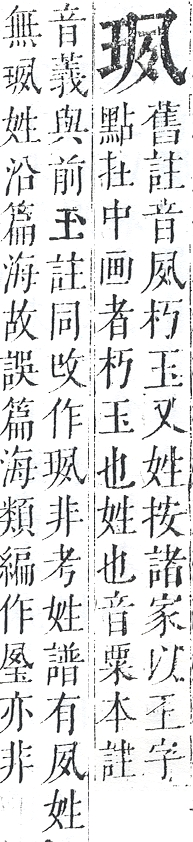 ⿰王夙
舊註音夙朽玉又姓按諸家以玉字
點扗中画者朽玉也姓也音粟本註
音義與前玊註同改作⿰王夙非考姓譜有夙姓
無⿰王夙姓沿篇海故誤篇海類編作⿱夙玉亦非